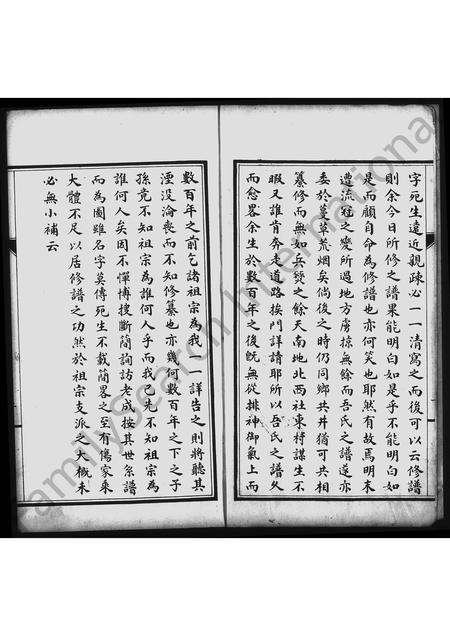 字死生遠近親疎必一一清寫之而後可以云修譜
則余今日所修之譜果能明白如是乎不能明白如
是而顧自命為修譜也亦何笑也耶然有故焉明末
遭流冦之變所過地方虜掠無餘而吾氏之譜遂亦
委於蔓草荒烟矣倘後之時仍同鄉共井猶可共相
纂修而無如兵燹之餘天南地北西社東村謀生不
暇又誰肯奔走道路挨門詳請耶所以吾氏之譜久
而愈畧余生於數百年之後既無從排神御氣上而
數百年之前乞諸祖宗為我一一詳告之則將聽其
湮没淪喪而不知修纂也亦幾何數百年之下之子
孫竟不知祖宗為誰何人乎而我已先不知祖宗為
誰何人矣因不憚博搜斷簡詢訪老成按其世系譜
而為圖雖名字莫傳死生不載簡畧之至有傷家乘
大體不足以居修譜之功然於祖宗支派之大概未
必無小補云
FamilySearch International